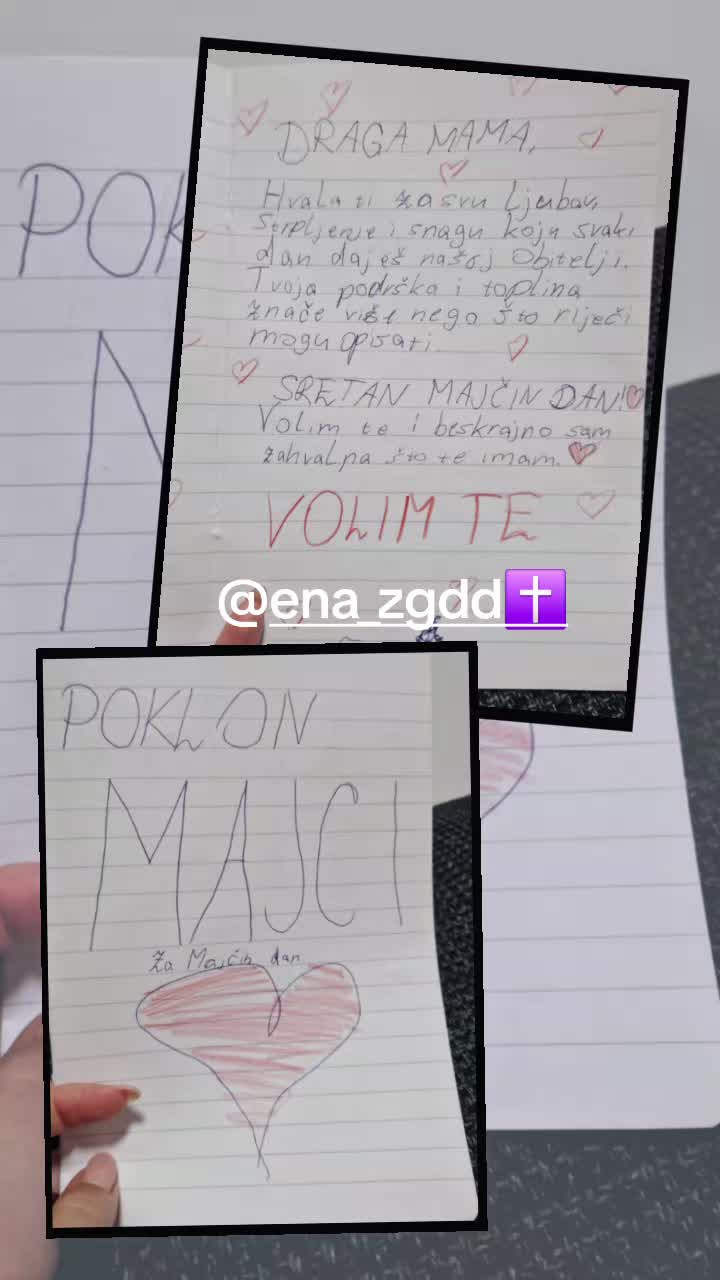 POK
DRAGA MAMA,
Hvala ti za svu ljubav,
strpljenje i snagu koju svaki
dan daješ našoj obitelji.
Tvoja podrška i toplina
znače više nego što riječi
mogu opisati.
SRETAN MAJČIN DAN!
Volim te i beskrajno sam
zahvalna što te imam.
VOLIM TE
@ena_zgdd
POKLON
MAJCI
Za Majčin dan